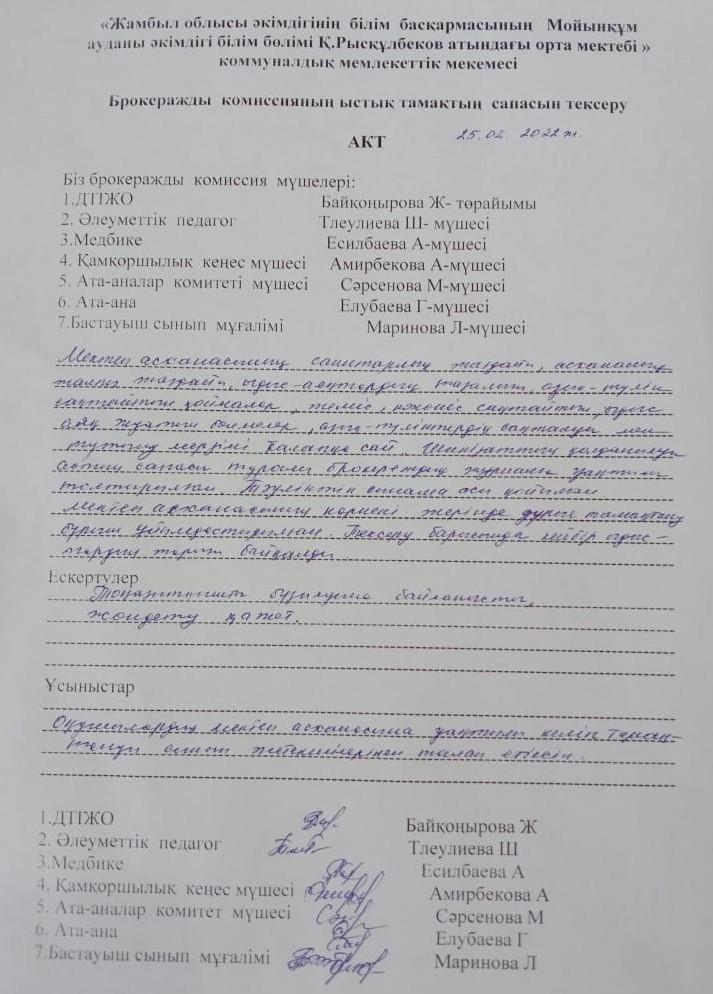 «Жамбыл облысы әкімдігінің білім басқармасының Мойынқұм
ауданы әкімдігі білім бөлімі Қ.Рысқұлбеков атындағы орта мектебі »
коммуналдық мемлекеттік мекемесі
Брокеражды комиссияның ыстық тамақтың сапасын тексеру
АКТ 25.02. 2022 ж.
Біз брокеражды комиссия мүшелері:
1.ДТІЖО Байқоңырова Ж- төрайымы
2. Әлеуметтік педагог Тлеулиева Ш- мүшесі
3.Медбике Есилбаева А-мүшесі
4. Қамқоршылық кеңес мүшесі Амирбекова А-мүшесі
5. Ата-аналар комитеті мүшесі Сәрсенова М-мүшесі
6. Ата-ана Елубаева Г-мүшесі
7.Бастауыш сынып мұғалімі Маринова Л-мүшесі
Мектеп асханасының санитарлық жағдайы, асхананың
жалпы жағдайы, ыдыс-аяқтардың тазалығы, азық-түлік
сақтайтын қоймалар, жеміс, көкөніс сақтайтын, ыдыс
аяқ жуатын бөлмелер, азық-түліктердің сақталуы мен
тұтыну мерзімі талапқа сай. қолданылуы
астың сапасы туралы журналы уақтылы
толтырылған. Тәуліктік сынама асы қойылған.
Мектеп асханасының көрнекі жерінде дұрыс тамақтану
бұрышы ұйымдастырылған. Тексеру барысында кейбір ыдыс-
байқалды.
Ескертулер
Тоңазытқыштың бұзылуына байланысты,
жөндету қажет.
Ұсыныстар
Оқушылардың мектеп асханасына уақтылы келіп тамақ-
тануы сынып жетекшілерінен талап етілсін.
1.ДТІЖО Байқоңырова Ж
2. Әлеуметтік педагог Тлеулиева Ш
3.Медбике Есилбаева А
4. Қамқоршылық кеңес мүшесі Амирбекова А
5. Ата-аналар комитет мүшесі Сәрсенова М
6. Ата-ана Елубаева Г
7.Бастауыш сынып мұғалімі Маринова Л